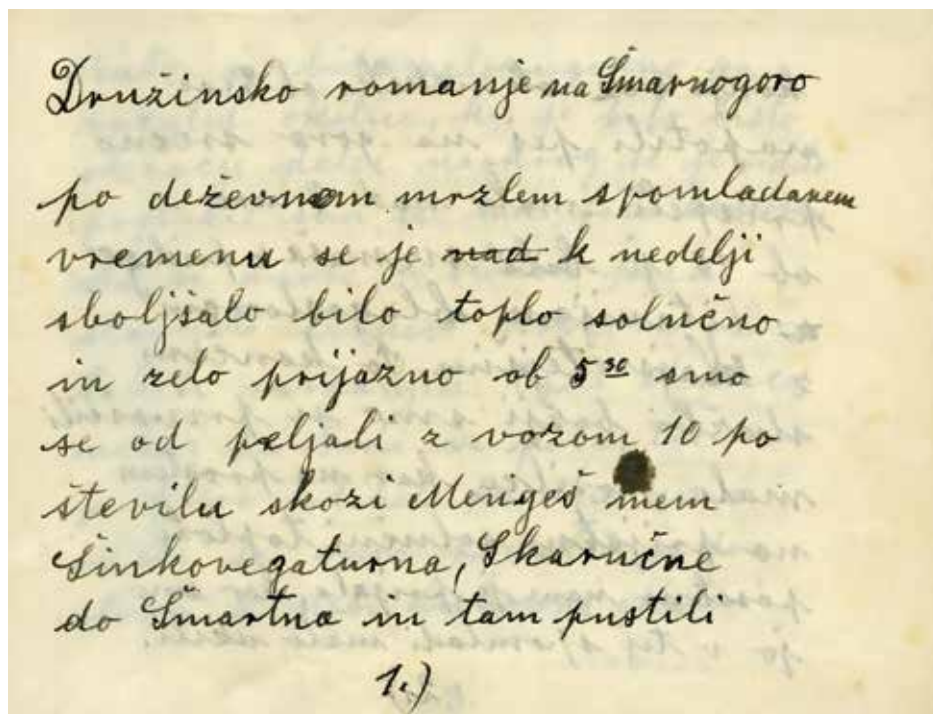 Družinsko romanje na Šmarnogoro
po deževnem mrzlem spomladanem
vremenu se je nad k nedelji
sboljšalo bilo toplo solnčno
in zelo prijazno ob 5 30 smo
se od peljali z vozom 10 po
številu skozi Mengeš mem
Šinkovegaturna, Skaručne
do Šmartna in tam pustili
1.)